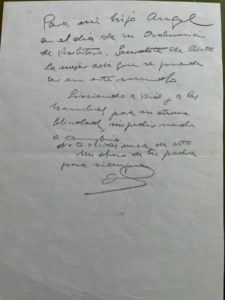 Para mi hijo Angel
en el día de su Ordenación
de Presbítero, Sacerdote de Cristo
lo mejor cosa que se puede
ser en este mundo
Sirviendo a Dios y a los
hombres para su eterna
felicidad, sin pedir nada
a cambio
No te olvides nunca de esto
Un abrazo de tu padre
para siempre